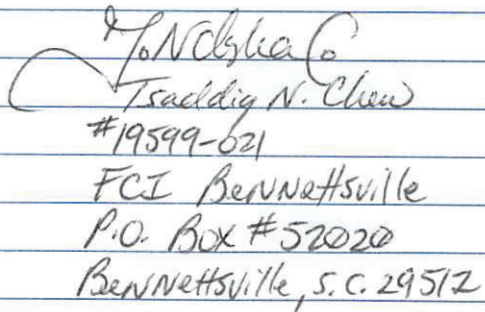 Tsaddiq N. Chew
#19599-021
FCI Bennettsville
P.O. Box #52020
Bennettsville, S.C. 29512